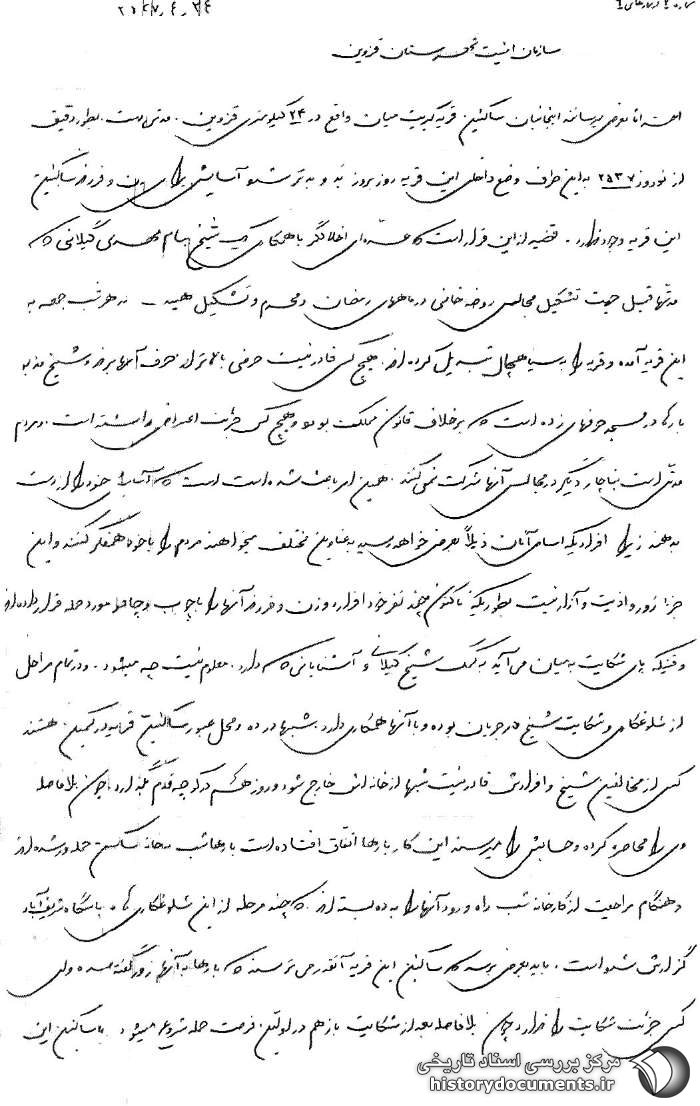 سازمان امنیت شهرستان قزوین
احتراما بعرض میرسانند اینجانبان ساکنین قریه کبریت میان واقع در ۲۴ کیلومتری قزوین. مدتی است بطور دقیق
از نوروز ۲۵۳۷ به این طرف وضع داخلی این قریه روز بروز بد و بدتر شده و آسایش برای زن و فرزند ساکنین
این قریه وجود ندارد. قضیه از این قرار است که عده‌ای اخلالگر با همکاری یک شیخ بنام مهدی گیلانی که
مدتها قبل جهت تشکیل مجالس روضه خوانی در ماههای رمضان و محرم و تشکیل هیئت در هر شب جمعه به
این قریه آمده و قریه را به سیاهچال تبدیل کرده‌اند. هیچ کس قادر نیست حرفی بالاتر از حرف آنها بزند و شیخ مذبور
بارها در مسجد حرفهای زده است که برخلاف قانون مملکت بوده و هیچ کس جرئت اعتراض نداشته است. و مردم
مدتی است بناچار دیگر در مجالس آنها شرکت نمی‌کنند. همین امر باعث شده است است که آسایش خود را از دست
بدهند زیرا افرادیکه اسامی آنان ذیلاً بعرض خواهد رسید بعناوین مختلف میخواهند مردم را با خود همفکر کنند و این
جز زور و اذیت و آزار نیست بطوریکه تاکنون چند نفر خود افراد و زن و فرزند آنها را با چوب و چاقو مورد حمله قرار داده‌اند
وقتیکه پای شکایت به میان می‌آید به کمک شیخ گیلانی و آشنایانی که دارد. معلوم نیست چه میشود. و در تمام مراحل
از شلوغکاری و شکایت شیخ در جریان بوده و با آنها همکاری دارد. شبها در ده و محل عبور ساکنین قریه در کمین هستند
کسی از مخالفین شیخ و افرادش قادر نیست شبها از خانه‌اش خارج شود و روز هم در کوچه قدم بگذارد چون بلافاصله
وی را محاصره کرده و حسابش را میرسند این کار بارها اتفاق افتاده است بارها شب به خانه ساکنین حمله‌ور شده‌اند
و هنگام مراجعت از کارخانه شب راه ورود آنها را به ده بسته‌اند. که چند مرحله از این شلوغکاری‌ها به پاسگاه شریف‌آباد
گزارش شده است. باید بعرض برسد که ساکنین این قریه آنقدر می‌ترسند که بارها به آنها زور گفته شده ولی
کسی جرئت شکایت را ندارد چون بلافاصله بعد از شکایت باز هم در اولین فرصت حمله شروع میشود. ما ساکنین این
مرکز بررسی اسناد تاریخی
historydocuments.ir